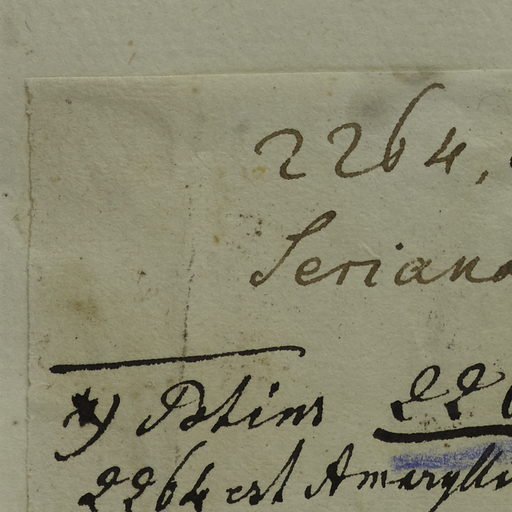 2264,
Seriana
*) Potius 226
2264 est Amarylli